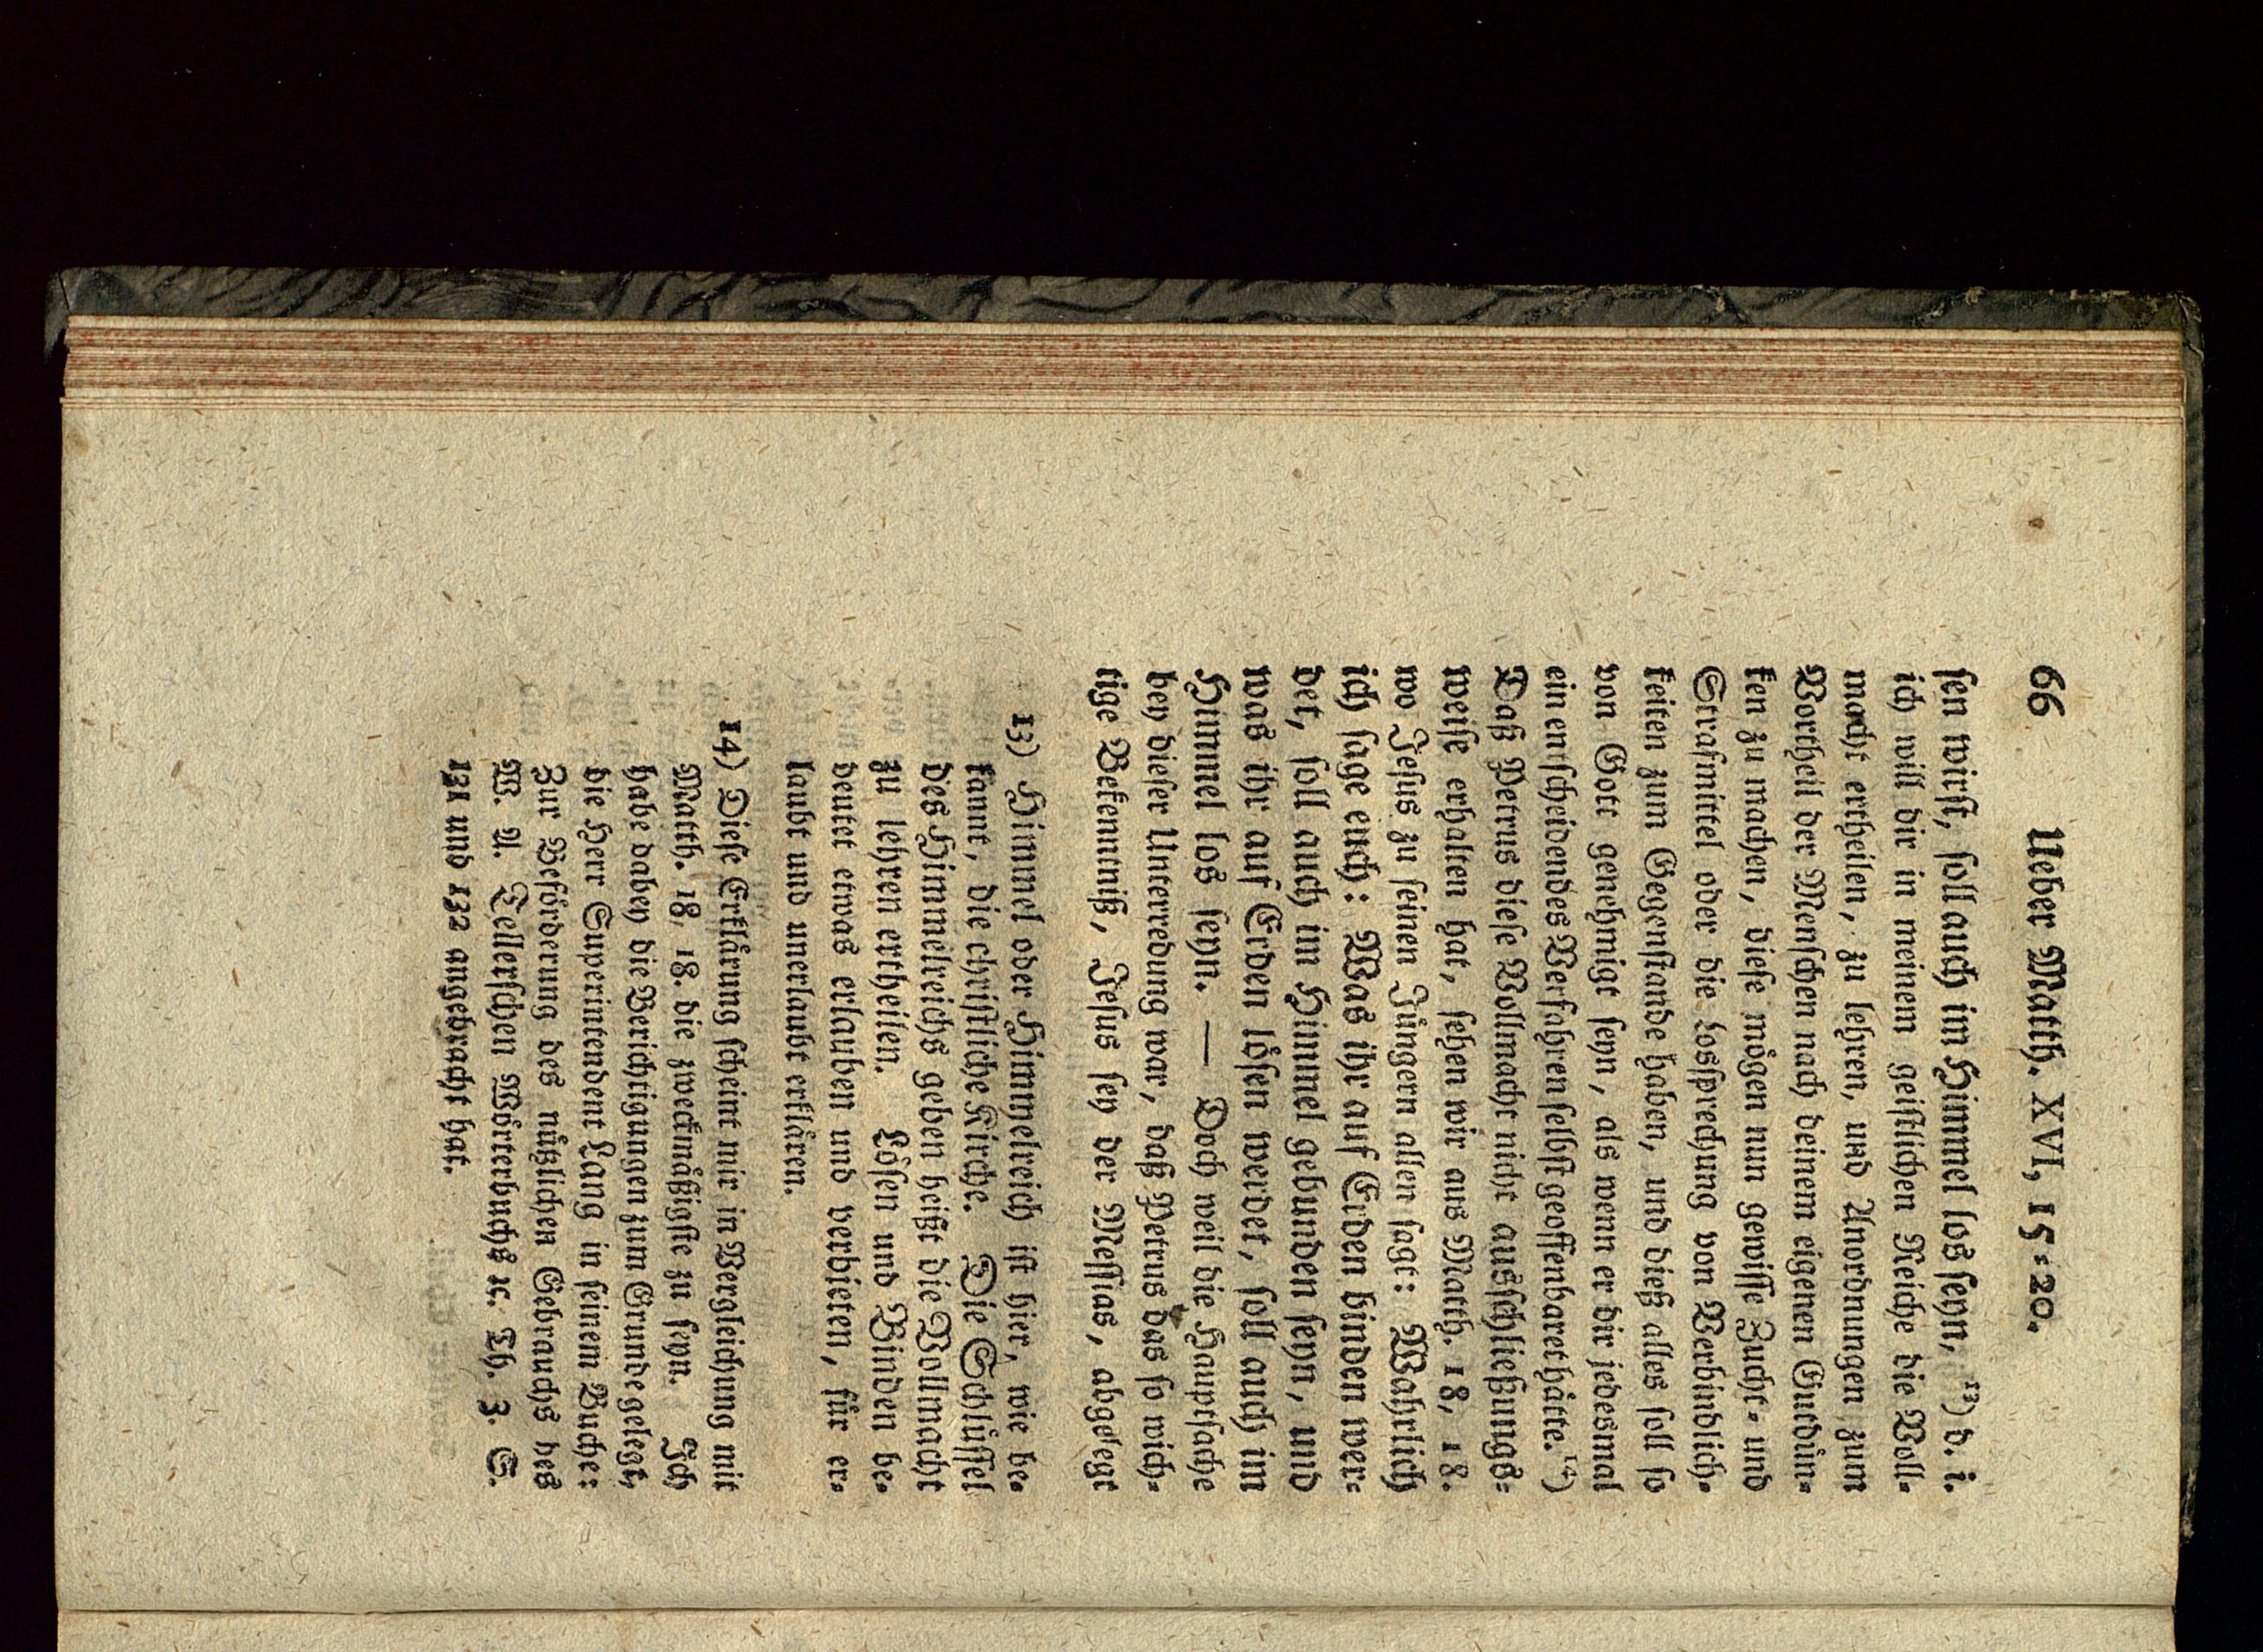 66 Ueber Matth. XVI, 15-20.
ſen wirſt, ſoll auch im Himmel los ſeyn, ¹³) d. i.
ich will dir in meinem geiſtlichen Reiche die Voll-
macht ertheilen, zu lehren, und Anordnungen zum
Vortheil der Menſchen nach deinem eigenen Gutdün-
ken zu machen, dieſe mögen nun gewiſſe Zucht- und
Strafmittel oder die Losſprechung von Verbindlich-
keiten zum Gegenſtande haben, und dieß alles ſoll ſo
von Gott genehmigt ſeyn, als wenn er dir jedesmal
ein entſcheidendes Verfahren ſelbſt geoffenbaret hätte. ¹⁴)
Daß Petrus dieſe Vollmacht nicht ausſchließungs-
weiſe erhalten hat, ſehen wir aus Matth. 18, 18.
wo Jeſus zu ſeinen Jüngern allen ſagt: Wahrlich
ich ſage euch: Was ihr auf Erden binden wer-
det, ſoll auch im Himmel gebunden ſeyn, und
was ihr auf Erden löſen werdet, ſoll auch im
Himmel los ſeyn. — Doch weil die Hauptſache
bey dieſer Unterredung war, daß Petrus das ſo wich-
tige Bekenntniß, Jeſus ſey der Meſſias, abgelegt
13) Himmel oder Himmelreich iſt hier, wie be-
kannt, die chriſtliche Kirche. Die Schlüſſel
des Himmelreichs geben heißt die Vollmacht
zu lehren ertheilen. Löſen und Binden be-
deutet etwas erlauben und verbieten, für er-
laubt und unerlaubt erklären.
14) Dieſe Erklärung ſcheint mir in Vergleichung mit
Matth. 18, 18. die zweckmäßigſte zu ſeyn. Ich
habe dabey die Berichtigungen zum Grunde gelegt,
die Herr Superintendent Lang in ſeinem Buche:
Zur Beförderung des nützlichen Gebrauchs des
W. A. Tellerſchen Wörterbuchs ꝛc. Th. 3. S.
131 und 132 angebracht hat.